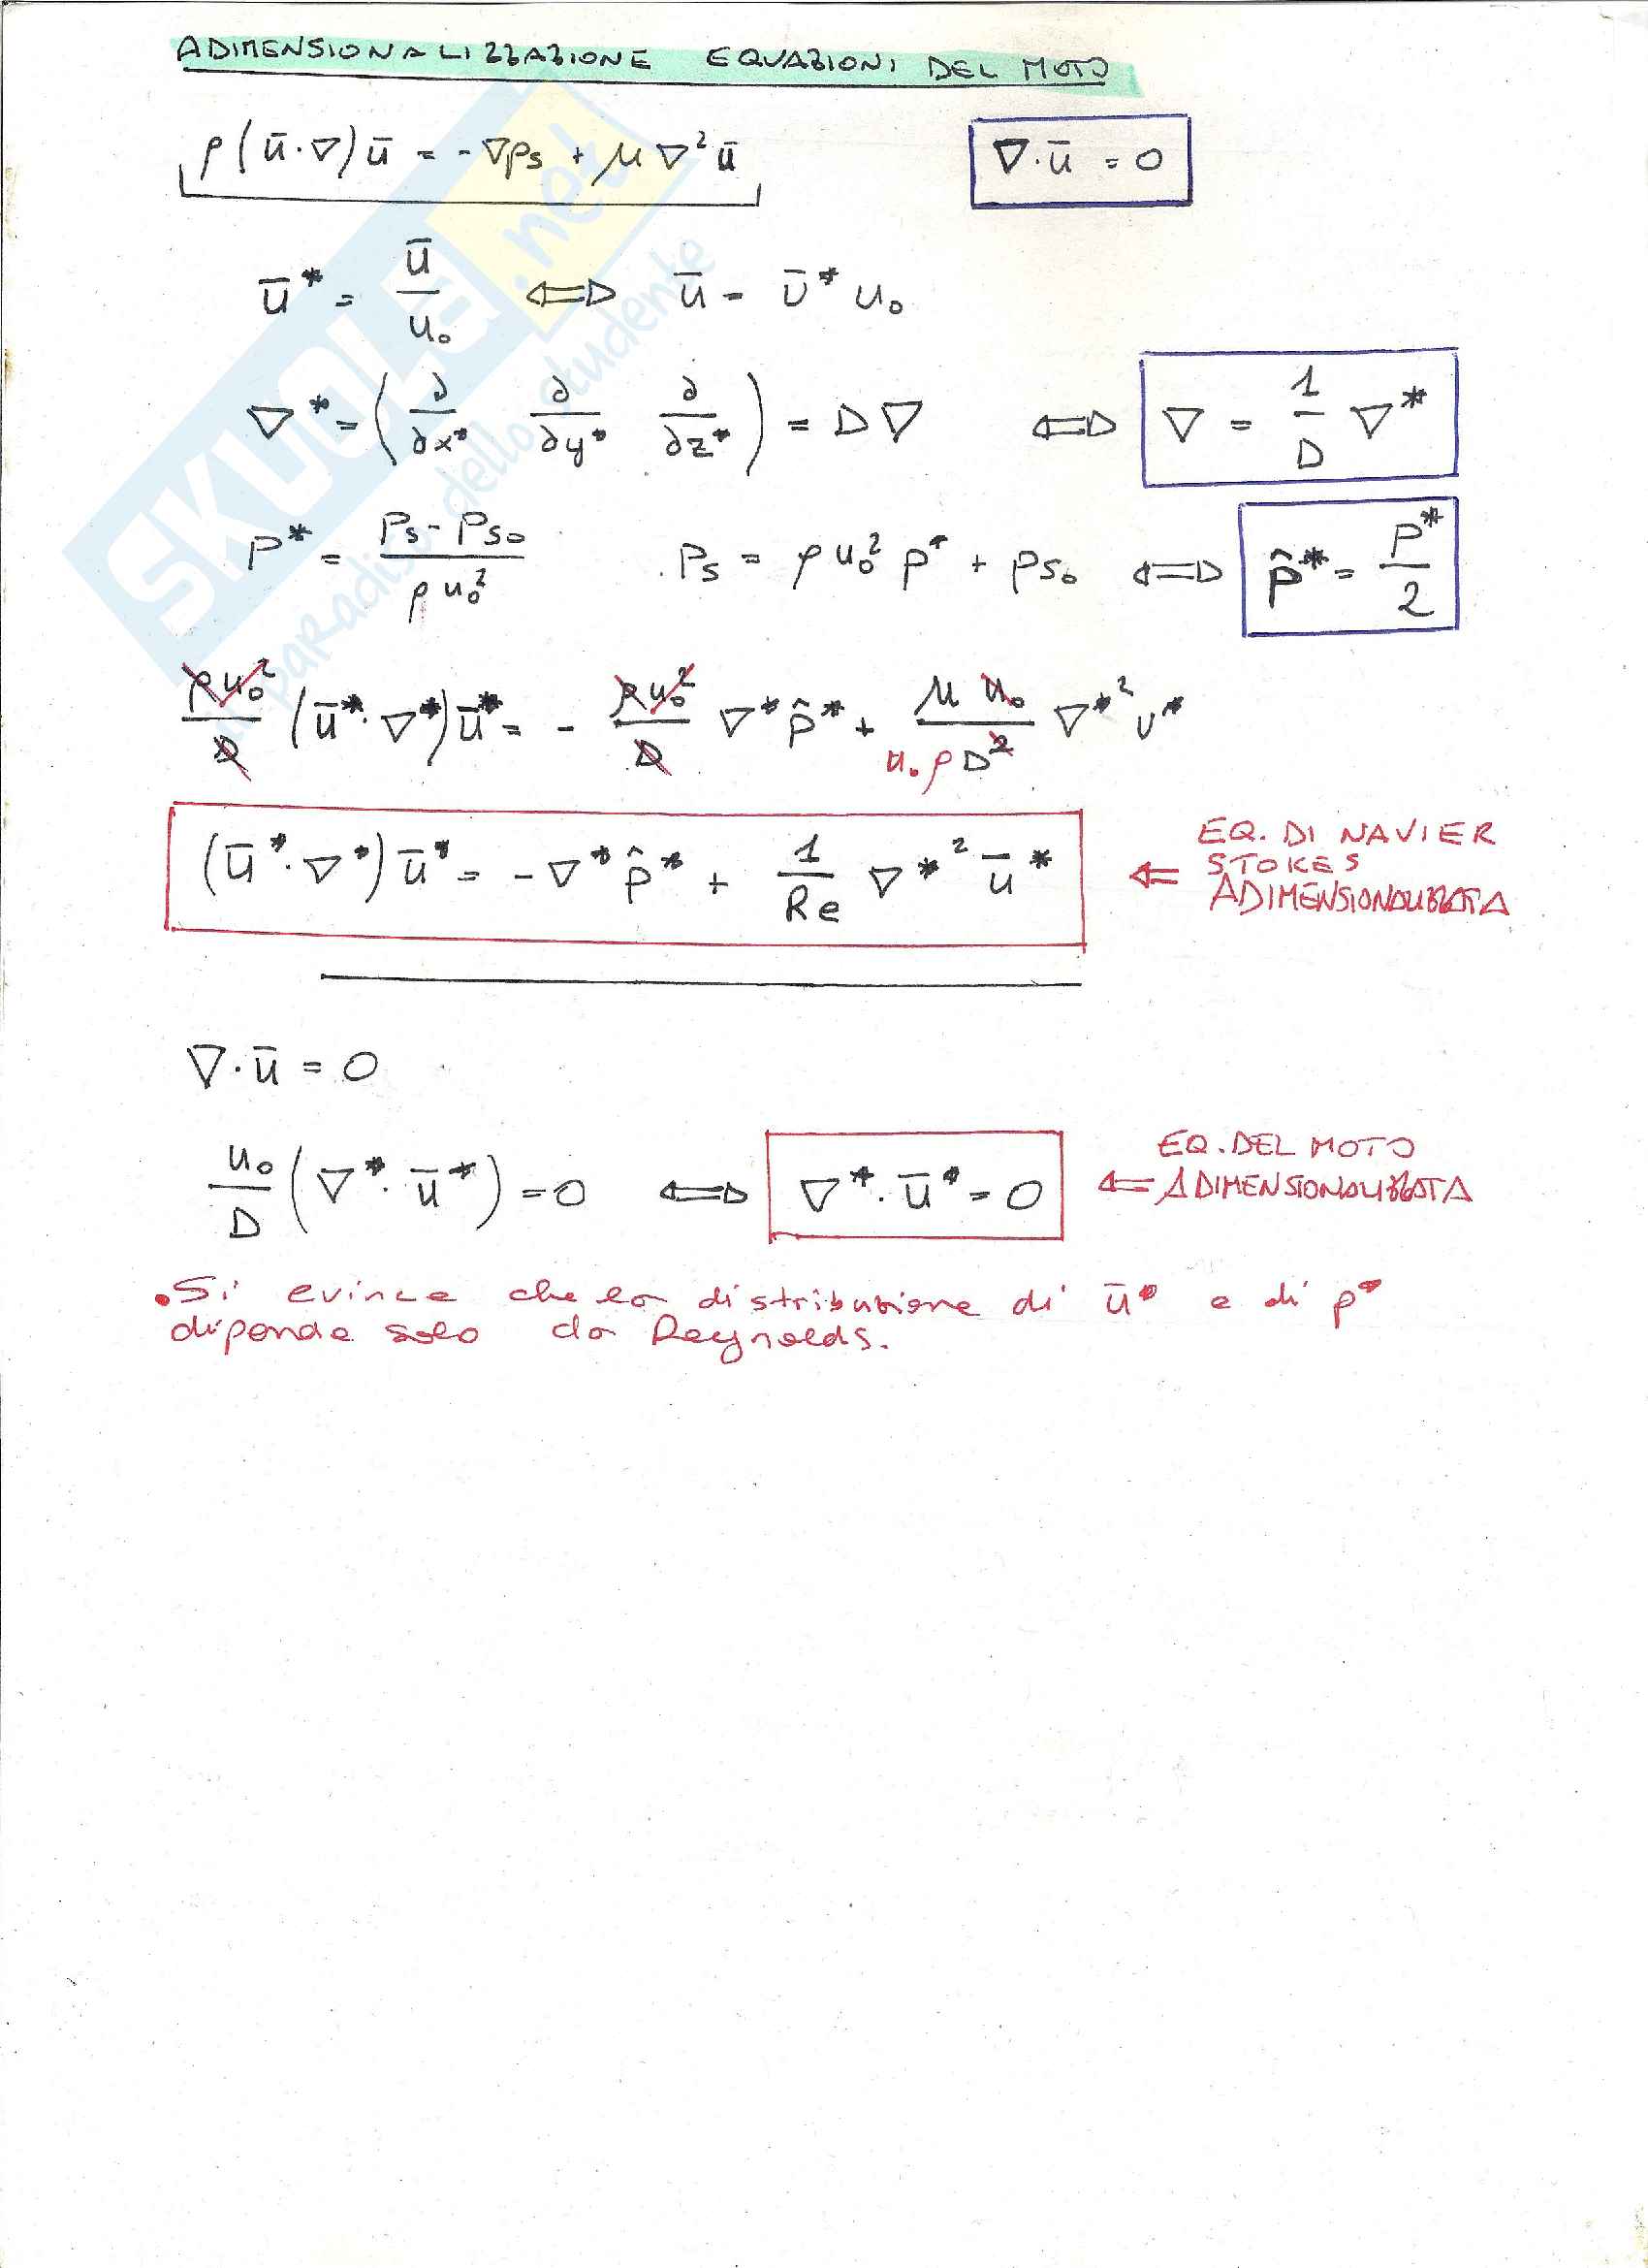 ADIMENSIONALIZZAZIONE EQUAZIONI DEL MOTO
ρ(ū·∇)ū = -∇ps + μ∇²ū    ∇·ū = 0
ū* = ū/u₀ ⇔ ū = ū* u₀
∇* = (∂/∂x* ∂/∂y* ∂/∂z*) = D∇ ⇔ ∇ = 1/D ∇*
P* = (Ps - Ps₀)/(ρu₀²)    Ps = ρu₀² p* + ps₀ ⇔ p̂* = P*/2
ρu₀²/D (ū*·∇*)ū* = - ρu₀²/D ∇*p̂* + μu₀/(u₀ρD²) ∇*² u*
(ū*·∇*)ū* = -∇*p̂* + 1/Re ∇*² ū* ⇐ EQ. DI NAVIER
STOKES
ADIMENSIONALIZZATA
∇·ū = 0
u₀/D (∇*·ū*) = 0 ⇔ ∇*·ū* = 0 ⇐ EQ. DEL MOTO
ADIMENSIONALIZZATA
• Si evince che la distribuzione di ū* e di p*
dipende solo da Reynolds.
SKUOLA.net
paradiso dello studente